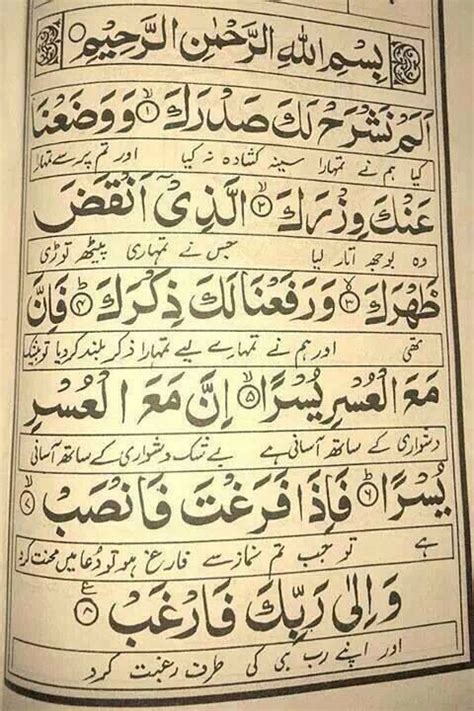 بِسْمِ اللهِ الرَّحْمٰنِ الرَّحِیْمِ
اَلَمْ نَشْرَحْ لَكَ صَدْرَكَ ۙ﴿۱﴾ وَوَضَعْنَا
کیا ہم نے تمہارا سینہ کشادہ نہ کیا اور تم پر سے تمہارا
عَنْكَ وِزْرَكَ ۙ﴿۲﴾ الَّذِیْۤ اَنْقَضَ
وہ بوجھ اتار لیا جس نے تمہاری پیٹھ توڑی
ظَهْرَكَ ۙ﴿۳﴾ وَرَفَعْنَا لَكَ ذِكْرَكَ ؕ﴿۴﴾ فَاِنَّ
تھی اور ہم نے تمہارے لیے تمہارا ذکر بلند کردیا تو بیشک
مَعَ الْعُسْرِ یُسْرًا ۙ﴿۵﴾ اِنَّ مَعَ الْعُسْرِ
دشواری کے ساتھ آسانی ہے بے شک دشواری کے ساتھ آسانی
یُسْرًا ؕ﴿۶﴾ فَاِذَا فَرَغْتَ فَانْصَبْ ۙ﴿۷﴾
ہے تو جب تم نماز سے فارغ ہو تو دُعا میں محنت کرو
وَاِلٰی رَبِّكَ فَارْغَبْ ﴿۸﴾ ع
اور اپنے رب ہی کی طرف رغبت کرو